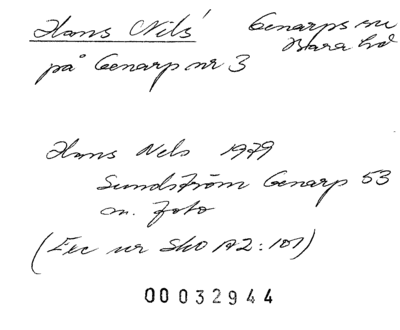 Hans Nels' Genarps sn
Bara hd
på Genarp nr 3
Hans Nels 1979
Sundström Genarp 53
m. foto
(Exc ur SkO A2:101)
00032944